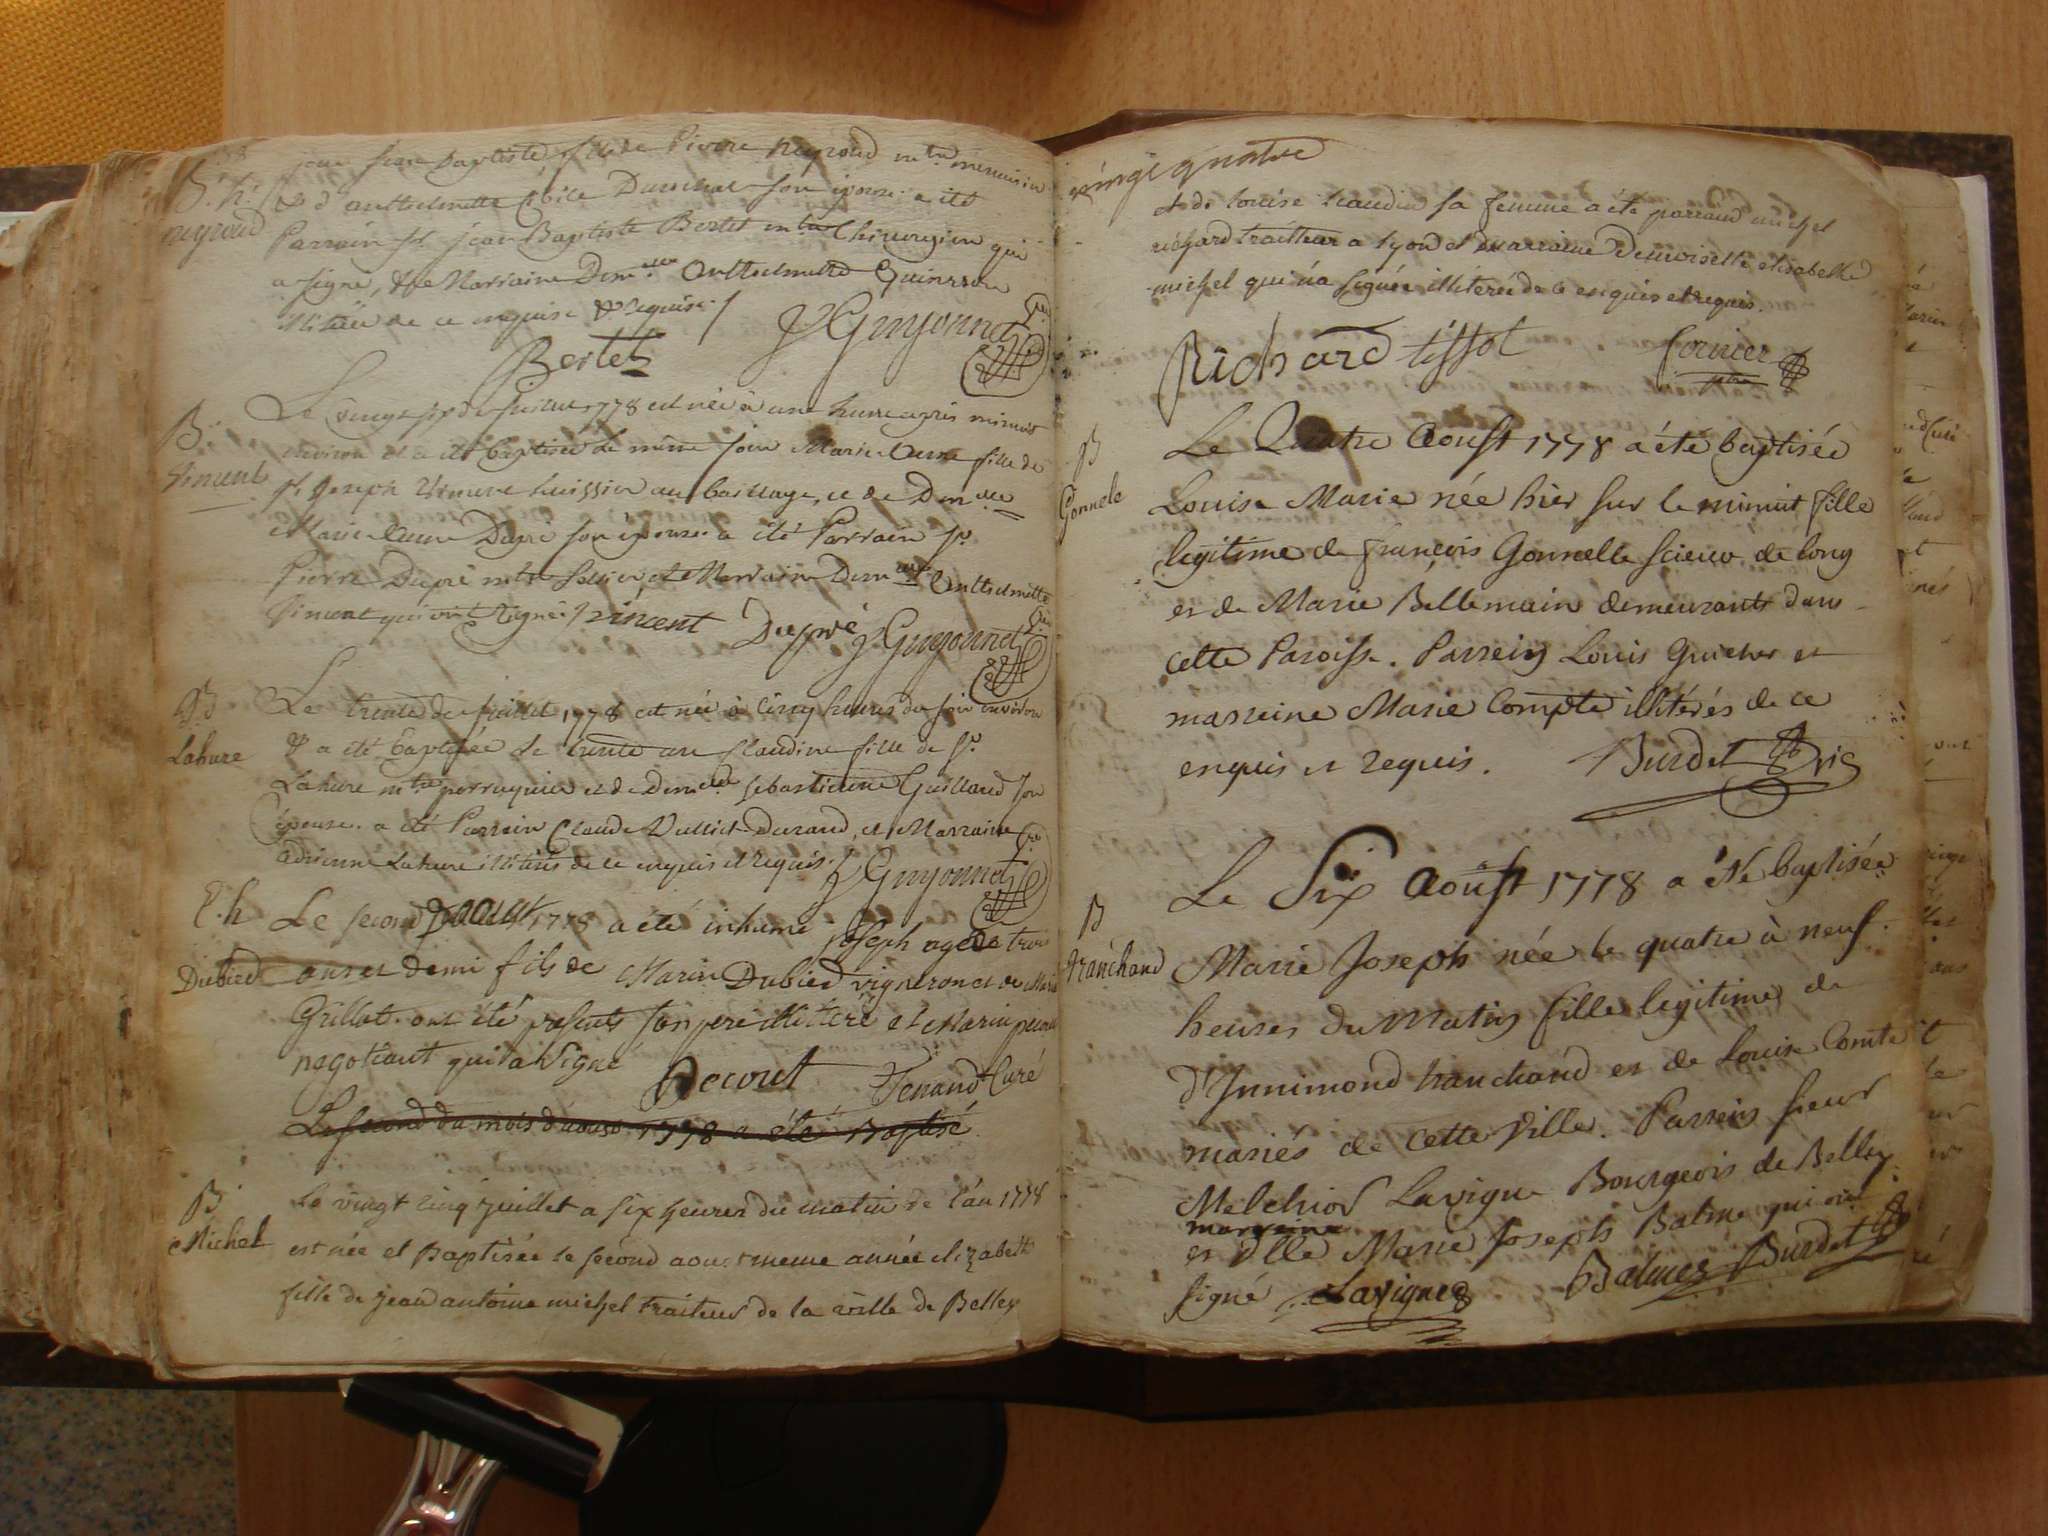 jour jean baptiste fils de Pierre Neyroud mtre menuisier
B. h.
neyroud
& d'anthelmette son épouse a été
Parrain sr jean Baptiste Bertet mtre Chirurgien qui
a signé, & Marraine Demlle Anthelmette Guinsson
illitérée de ce enquise & requise /
Bertet
Guyonnet
B.
Vincent
Le vingt sept de juillet 1778 est née à une heure après minuit
environ et a été baptisée le même jour Marie Anne fille de
sr Joseph Vincent huissier au bailliage, et de Demlle
Marie Anne Dupré son épouse. a été Parrain sr
Pierre Dupré mtre sellier, et Marraine Demlle Anthelmette
Vincent qui ont signé / vincent Dupré Guyonnet
B
Lahure
Le trente de juillet 1778 est née à cinq heures du soir environ
& a été baptisée le trente un Claudine fille de sr
Lahure mtre perruquier et de Demlle sebastienne Guilland son
épouse. a été Parrain Claude Durand, et Marraine
adrienne Lahure illitérés de ce enquis et requis /
Guyonnet
E. h
Dubied
Le second aoust 1778 a été inhumé joseph agé de trois
ans et demi fils de Marin Dubied vigneron et de Marie
Grillot. ont été présents son père illitéré et Marin
negotiant qui a signé
Decout Tenand Curé
Le second du mois d'aoust 1778 a été Baptisé
B
Michel
Le vingt cinq juillet a six heures du matin de l'an 1778
est née et Baptisée le second aoust meme année elizabeth
fille de jean antoine michel traiteur de la ville de Belley
vingt quatre
et de louise sa femme a été parrain michel
richard traitteur a lyon et marraine Demoiselle elisabelle
michel qui n'a signée illiterée de ce enquis et requis.
Richard tissot fornier ptre
B
Gonnele
Le Quatre Aoust 1778 a été baptisée
Louise Marie née hier sur le minuit fille
legitime de françois Gonnelle scieur de long
et de Marie Bellemain demeurants dans
cette Paroisse. Parrein Louis Guicher et
marreine Marie Compte illitérés de ce
enquis et requis. Burdet Vic
B
tranchand
Le Six Aoust 1778 a été baptisée
Marie Joseph née le quatre à neuf
heures du Matin fille legitime de
d'Innimond tranchand et de Louise Comte
mariés de cette Ville. Parrein sieur
Melchior Lavigne Bourgeois de Belley
marreine
et dlle Marie Joseph Balme qui ont
signé Lavigne Balmes Burdet